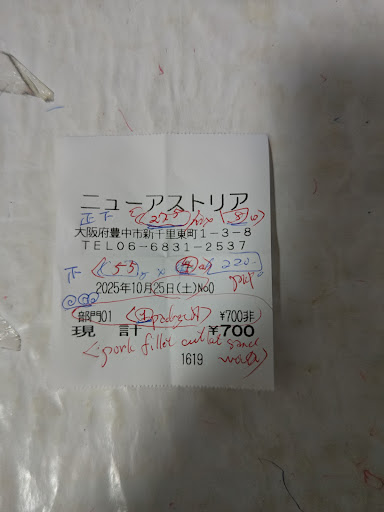 ニューアストリア
正下 (225) (8)
大阪府豊中市新千里東町1-3-8
TEL06-6831-2537
下 (55) × 220
2025年10月25日(土)No0
部門01 ¥700非
現 計 ¥700
<pork fillet cutlet sand
1619